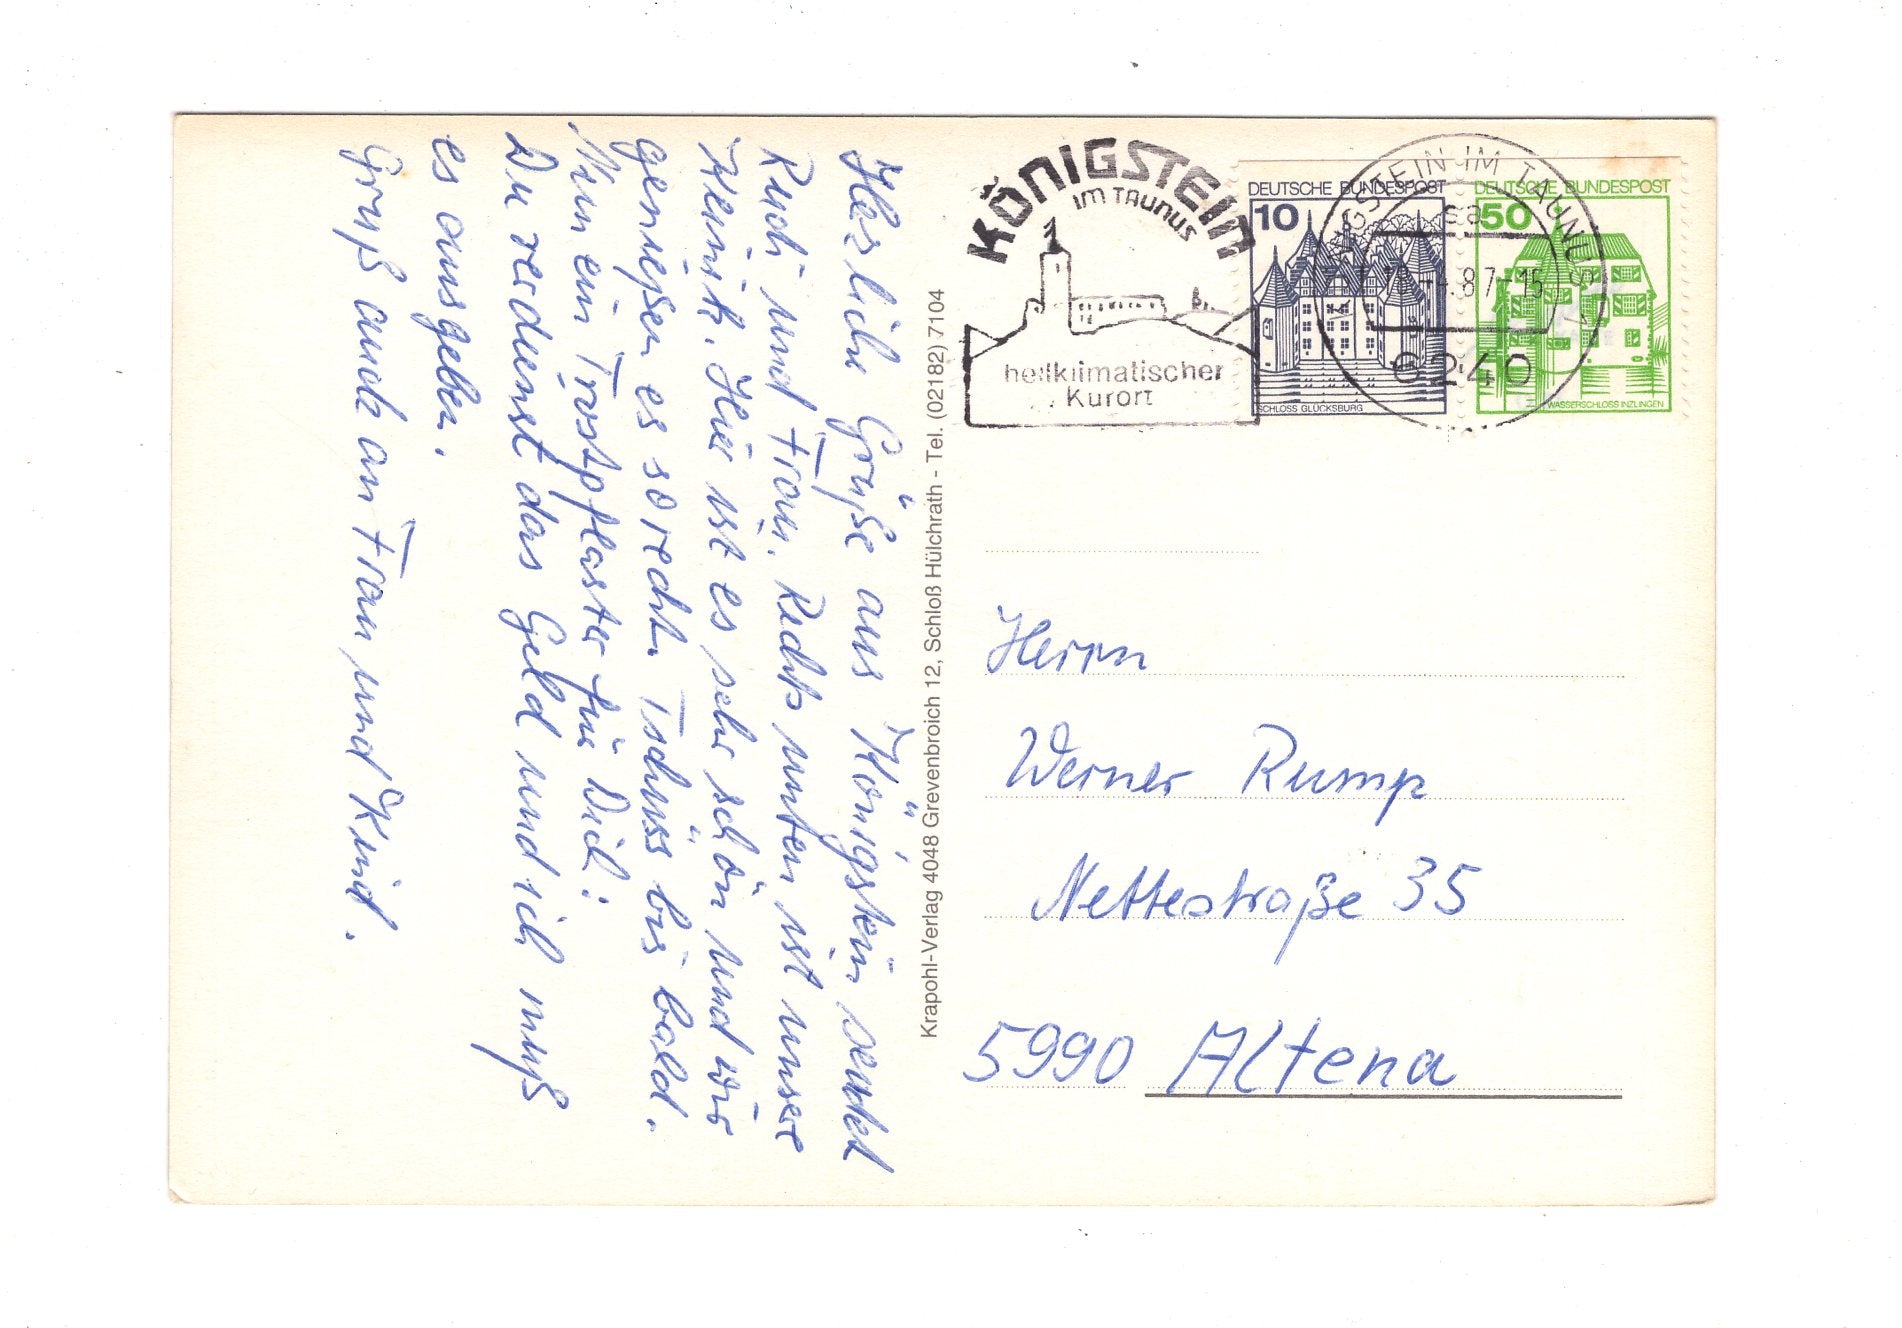 Herzliche Grüße aus Königstein sendet
Rudi und Frau. Rechts unten ist unsere
Klinik. Hier ist es sehr schön und wir
genießen es so recht. Tschüss bis bald.
Nun ein Trostpflaster für Dich:
Du verdienst das Geld und ich muß
es ausgeben.
Gruß auch an Frau und Kind.
Krapohl-Verlag 4048 Grevenbroich 12, Schloß Hülchrath - Tel. (02182) 7104
KÖNIGSTEIN
IM TAUNUS
heilklimatischer
Kurort
DEUTSCHE BUNDESPOST
10
SCHLOSS GLÜCKSBURG
DEUTSCHE BUNDESPOST
50
WASSERSCHLOSS INZLINGEN
KÖNIGSTEIN IM TAUNUS 1
sa
.87-15
6240
Herrn
Werner Rump
Nettestraße 35
5990 Altena